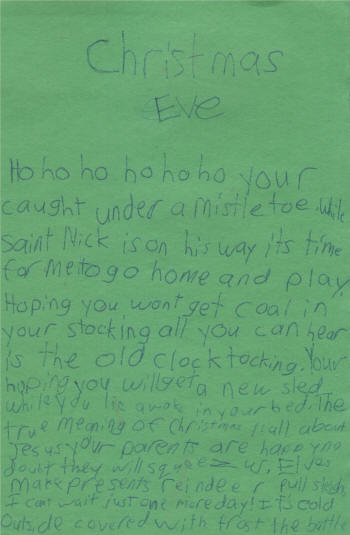 Christmas
Eve
Ho ho ho ho ho ho your
caught under a mistletoe. While
Saint Nick is on his way its time
for me to go home and play.
Hoping you wont get coal in
your stocking all you can hear
is the old clock tocking. Your
hoping you will get a new sled
while you lie awake in your bed. The
true meaning of Christmas is all about
Jesus your parents are happy no
doubt they will squeeze us. Elves
make presents reindeer pull sleighs
I cant wait just one more day! It is cold
outside covered with frost the battle